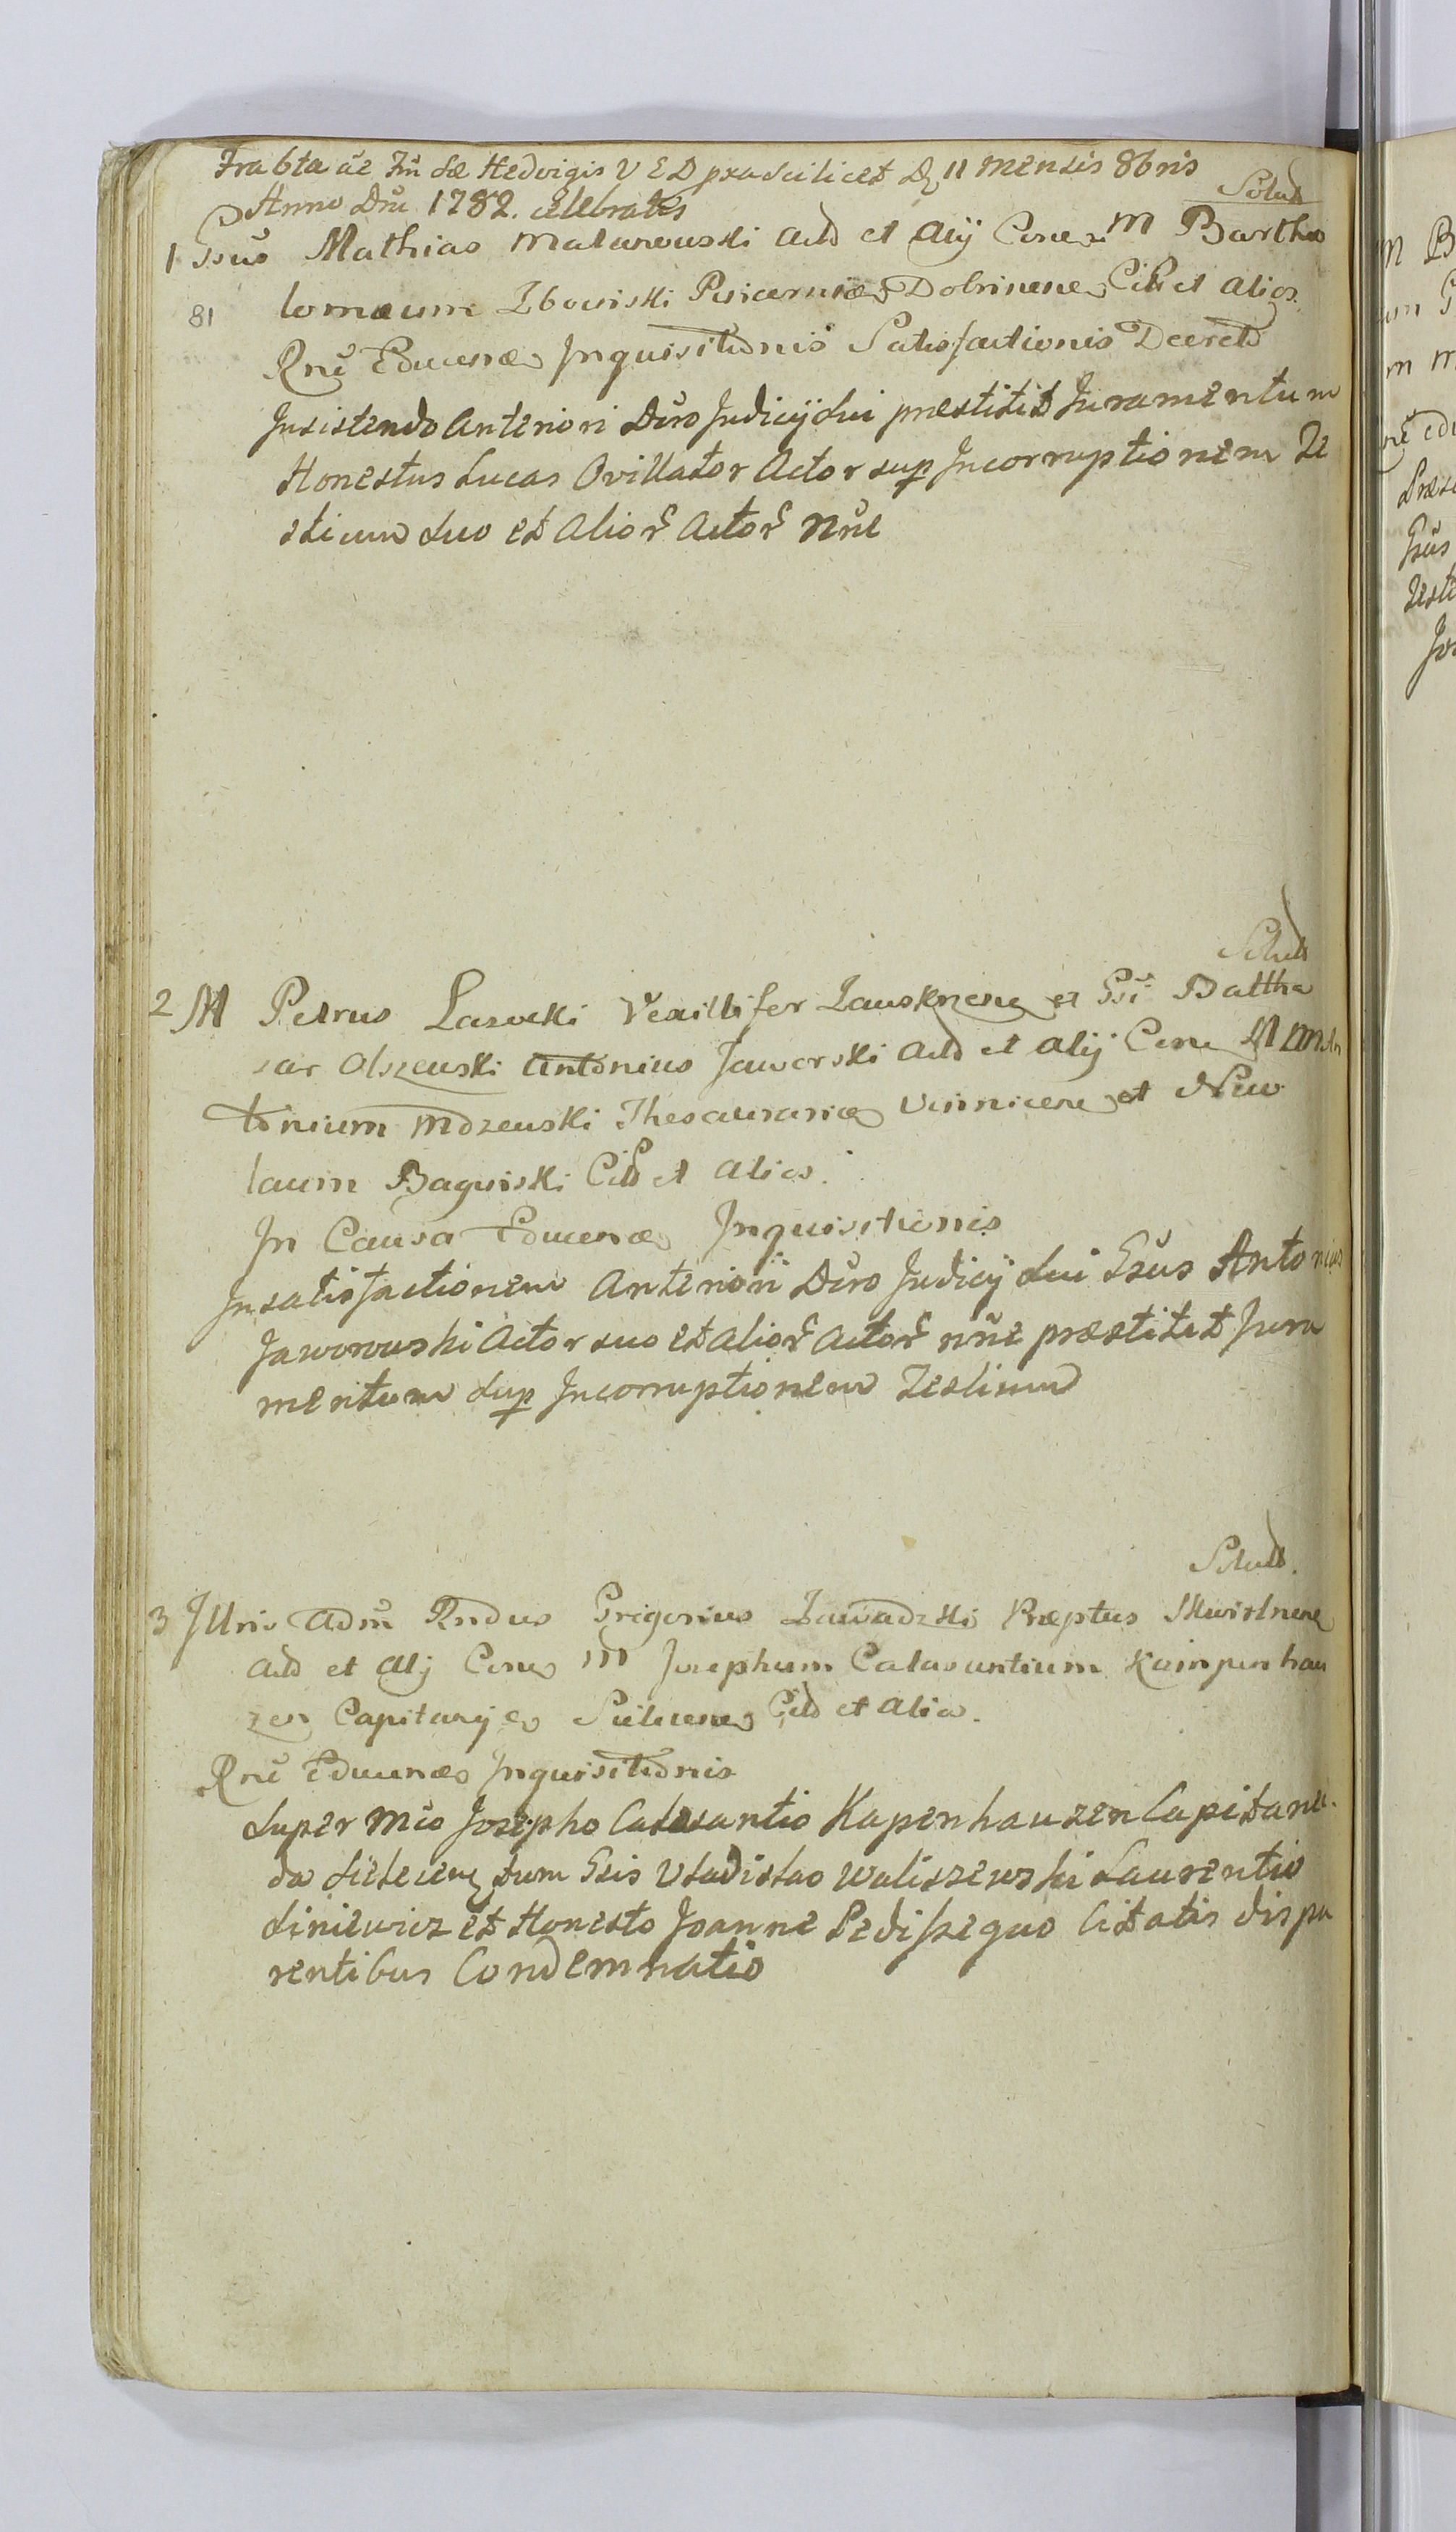 Fra 6ta ãe Fũ Sæ Hedvigis V E D pra scilicet D 11 Mensis 8bris
Anno Dñi 1782. celebratis
Solut
1 Gsus Mathias Malanowski Act et Alij Cone M Bartho
81
lomæum Zbowiski Pincernæ Dobrinene Cit et alios
Rnẽ Educenæ Inquisitionis Satisfactionis Decreto
Insistendo Anteriori Dũo Judicij Sui præstitit Juramentum
Honestus Lucas Ovillator Actor sup Incorruptionem Te
stium suo et Alior̃ Actor̃ Nñe
Solut
2 M Petrus Lasocki Vexillifer Zauskrzene et Gsi Baltha
sar Olszewski Antonius Jaworski Act et alij Cone M M An
tonium Mdzewski Thesaurariæ Vinnicene et Nico
laum Baguiski Cit et Alios.
In Causa Educenæ Inquisitionis
In satisfactionem Anteriori Dũo Judicij Sui Gsus Antonius
Jaworowski Actor suo et Alior̃ Actor̃ nñe præstitit Jura
mentum Sup Incorruptionem Testium
Solut.
3 Illris Adm̃ Rndus Grigorius Zawadzki Præptus Skwirlnene
Act et Alij Cone M Josephum Calasantium Kampenhau
zen Capitaney Sielecene Cit et Alios.
Rnẽ Educenæ Inquisitionis
Super Mco Josepho Calasantio Kapenhauzen Capitane.
do Sielecene tum Gsis Vladislao Waliszewski Laurentio
Siniewicz et Honesto Joanne Pedissequo Citatis dispa
rentibus Condemnatio